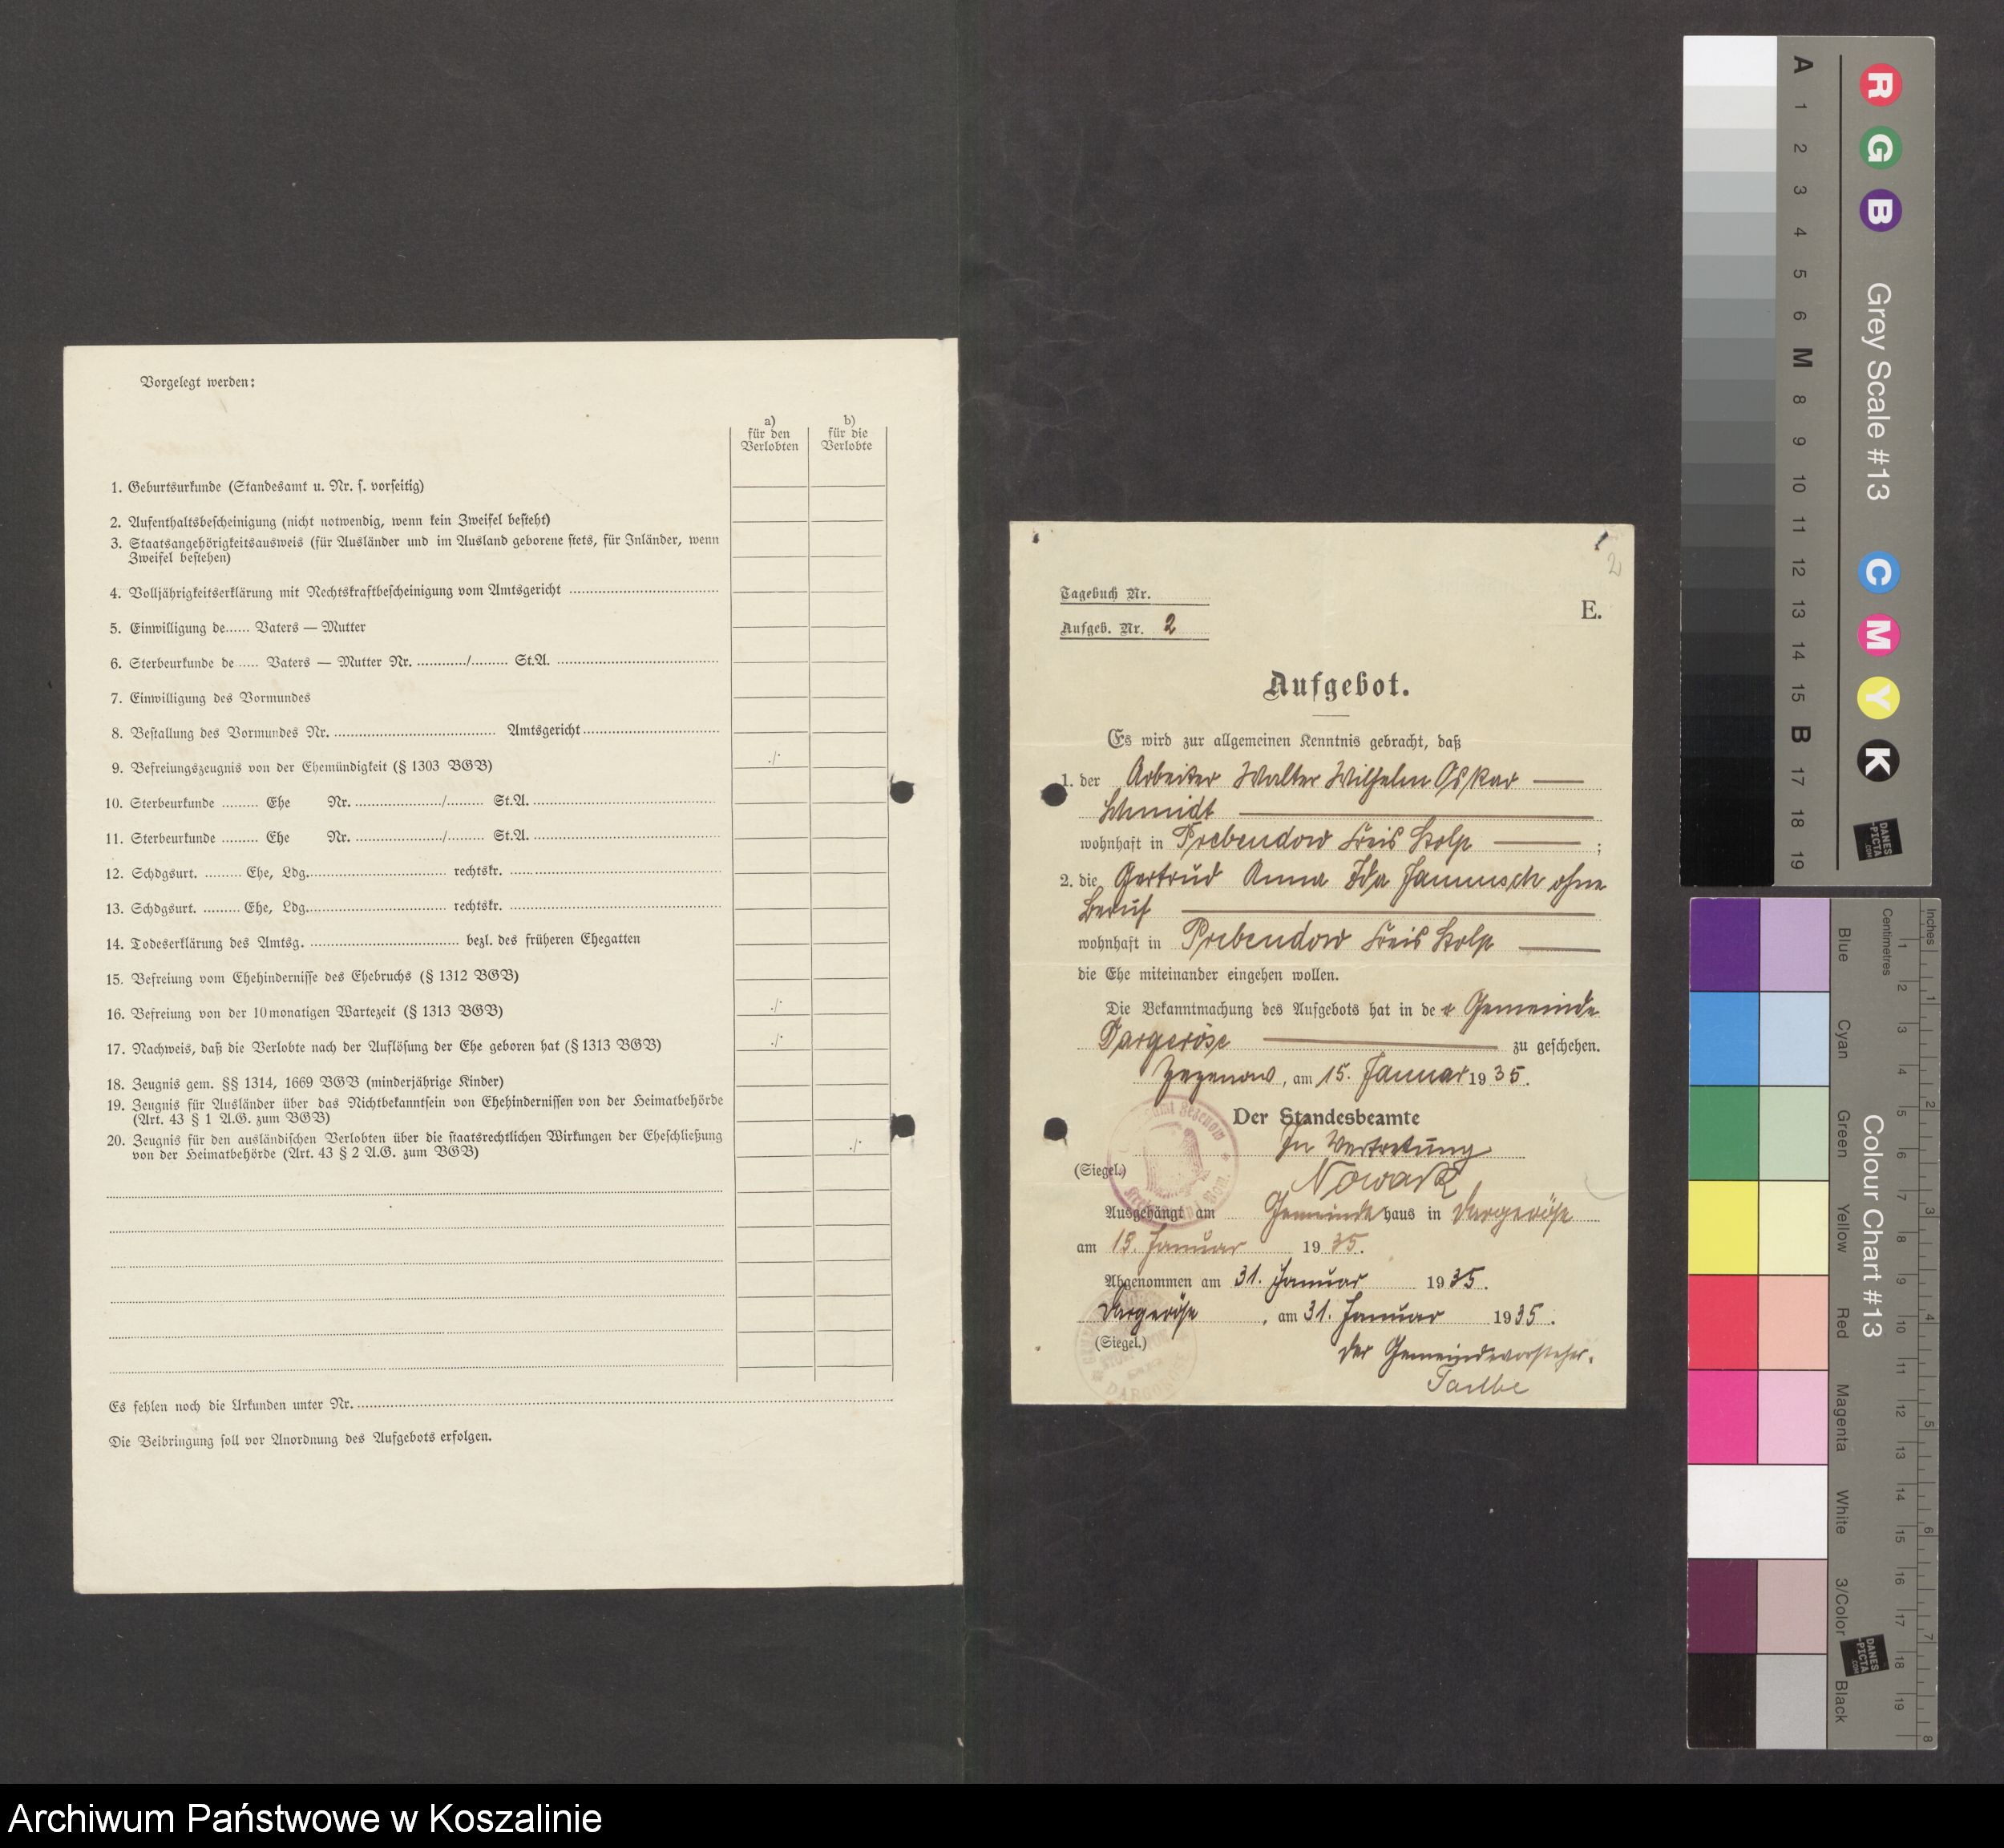 Vorgelegt werden:
a)
für den
Verlobten
b)
für die
Verlobte
1. Geburtsurkunde (Standesamt u. Nr. s. vorseitig)
2. Aufenthaltsbescheinigung (nicht notwendig, wenn kein Zweifel besteht)
3. Staatsangehörigkeitsausweis (für Ausländer und im Ausland geborene stets, für Inländer, wenn
Zweifel bestehen)
4. Volljährigkeitserklärung mit Rechtskraftbescheinigung vom Amtsgericht
5. Einwilligung de...... Vaters — Mutter
6. Sterbeurkunde de...... Vaters — Mutter Nr. ............/......... St.A.
7. Einwilligung des Vormundes
8. Bestallung des Vormundes Nr. .......... Amtsgericht
9. Befreiungszeugnis von der Ehemündigkeit (§ 1303 BGB) ./.
10. Sterbeurkunde ......... Ehe Nr. ............/......... St.A.
11. Sterbeurkunde ......... Ehe Nr. ............/......... St.A.
12. Schdgsurt. ......... Ehe, Ldg. .......... rechtskr.
13. Schdgsurt. ......... Ehe, Ldg. .......... rechtskr.
14. Todeserklärung des Amtsg. .......... bezl. des früheren Ehegatten
15. Befreiung vom Ehehindernisse des Ehebruchs (§ 1312 BGB)
16. Befreiung von der 10monatigen Wartezeit (§ 1313 BGB) ./.
17. Nachweis, daß die Verlobte nach der Auflösung der Ehe geboren hat (§ 1313 BGB) ./.
18. Zeugnis gem. §§ 1314, 1669 BGB (minderjährige Kinder)
19. Zeugnis für Ausländer über das Nichtbekanntsein von Ehehindernissen von der Heimatbehörde
(Art. 43 § 1 A.G. zum BGB)
20. Zeugnis für den ausländischen Verlobten über die staatsrechtlichen Wirkungen der Eheschließung
von der Heimatbehörde (Art. 43 § 2 A.G. zum BGB) ./.
Es fehlen noch die Urkunden unter Nr.
Die Beibringung soll vor Anordnung des Aufgebots erfolgen.
2
Tagebuch Nr.
E.
Aufgeb. Nr. 2
Aufgebot.
Es wird zur allgemeinen Kenntnis gebracht, daß
1. der Arbeiter Walter Wilhelm Oskar
Schmidt
wohnhaft in Prebendow Kreis Stolp ;
2. die Gertrud Anna Ida Jannusch ohne
Beruf
wohnhaft in Prebendow Kreis Stolp
die Ehe miteinander eingehen wollen.
Die Bekanntmachung des Aufgebots hat in der Gemeinde
Dargeröse zu geschehen.
Zezenow, am 15. Januar 1935.
Der Standesbeamte
In Vertretung
(Siegel.)
Nowack
Ausgehängt am Gemeindehaus in Dargeröse
am 15. Januar 1935.
Abgenommen am 31. Januar 1935.
Dargeröse, am 31. Januar 1935.
(Siegel.)
Der Gemeindevorsteher.
A 1 2 3 4 5 6 M 8 9 10 11 12 13 14 15 B 17 18 19
R G B Grey Scale #13 C M Y K
DANES
-PICTA
.COM
Blue Cyan Green Yellow Red Magenta White 3/Color Black
Colour Chart #13
DANES
-PICTA
.COM
Centimetres
1 2 3 4 5 6 7 8 9 10 11 12 13 14 15 16 17 18 19
Inches
1 2 3 4 5 6 7 8
Archiwum Państwowe w Koszalinie